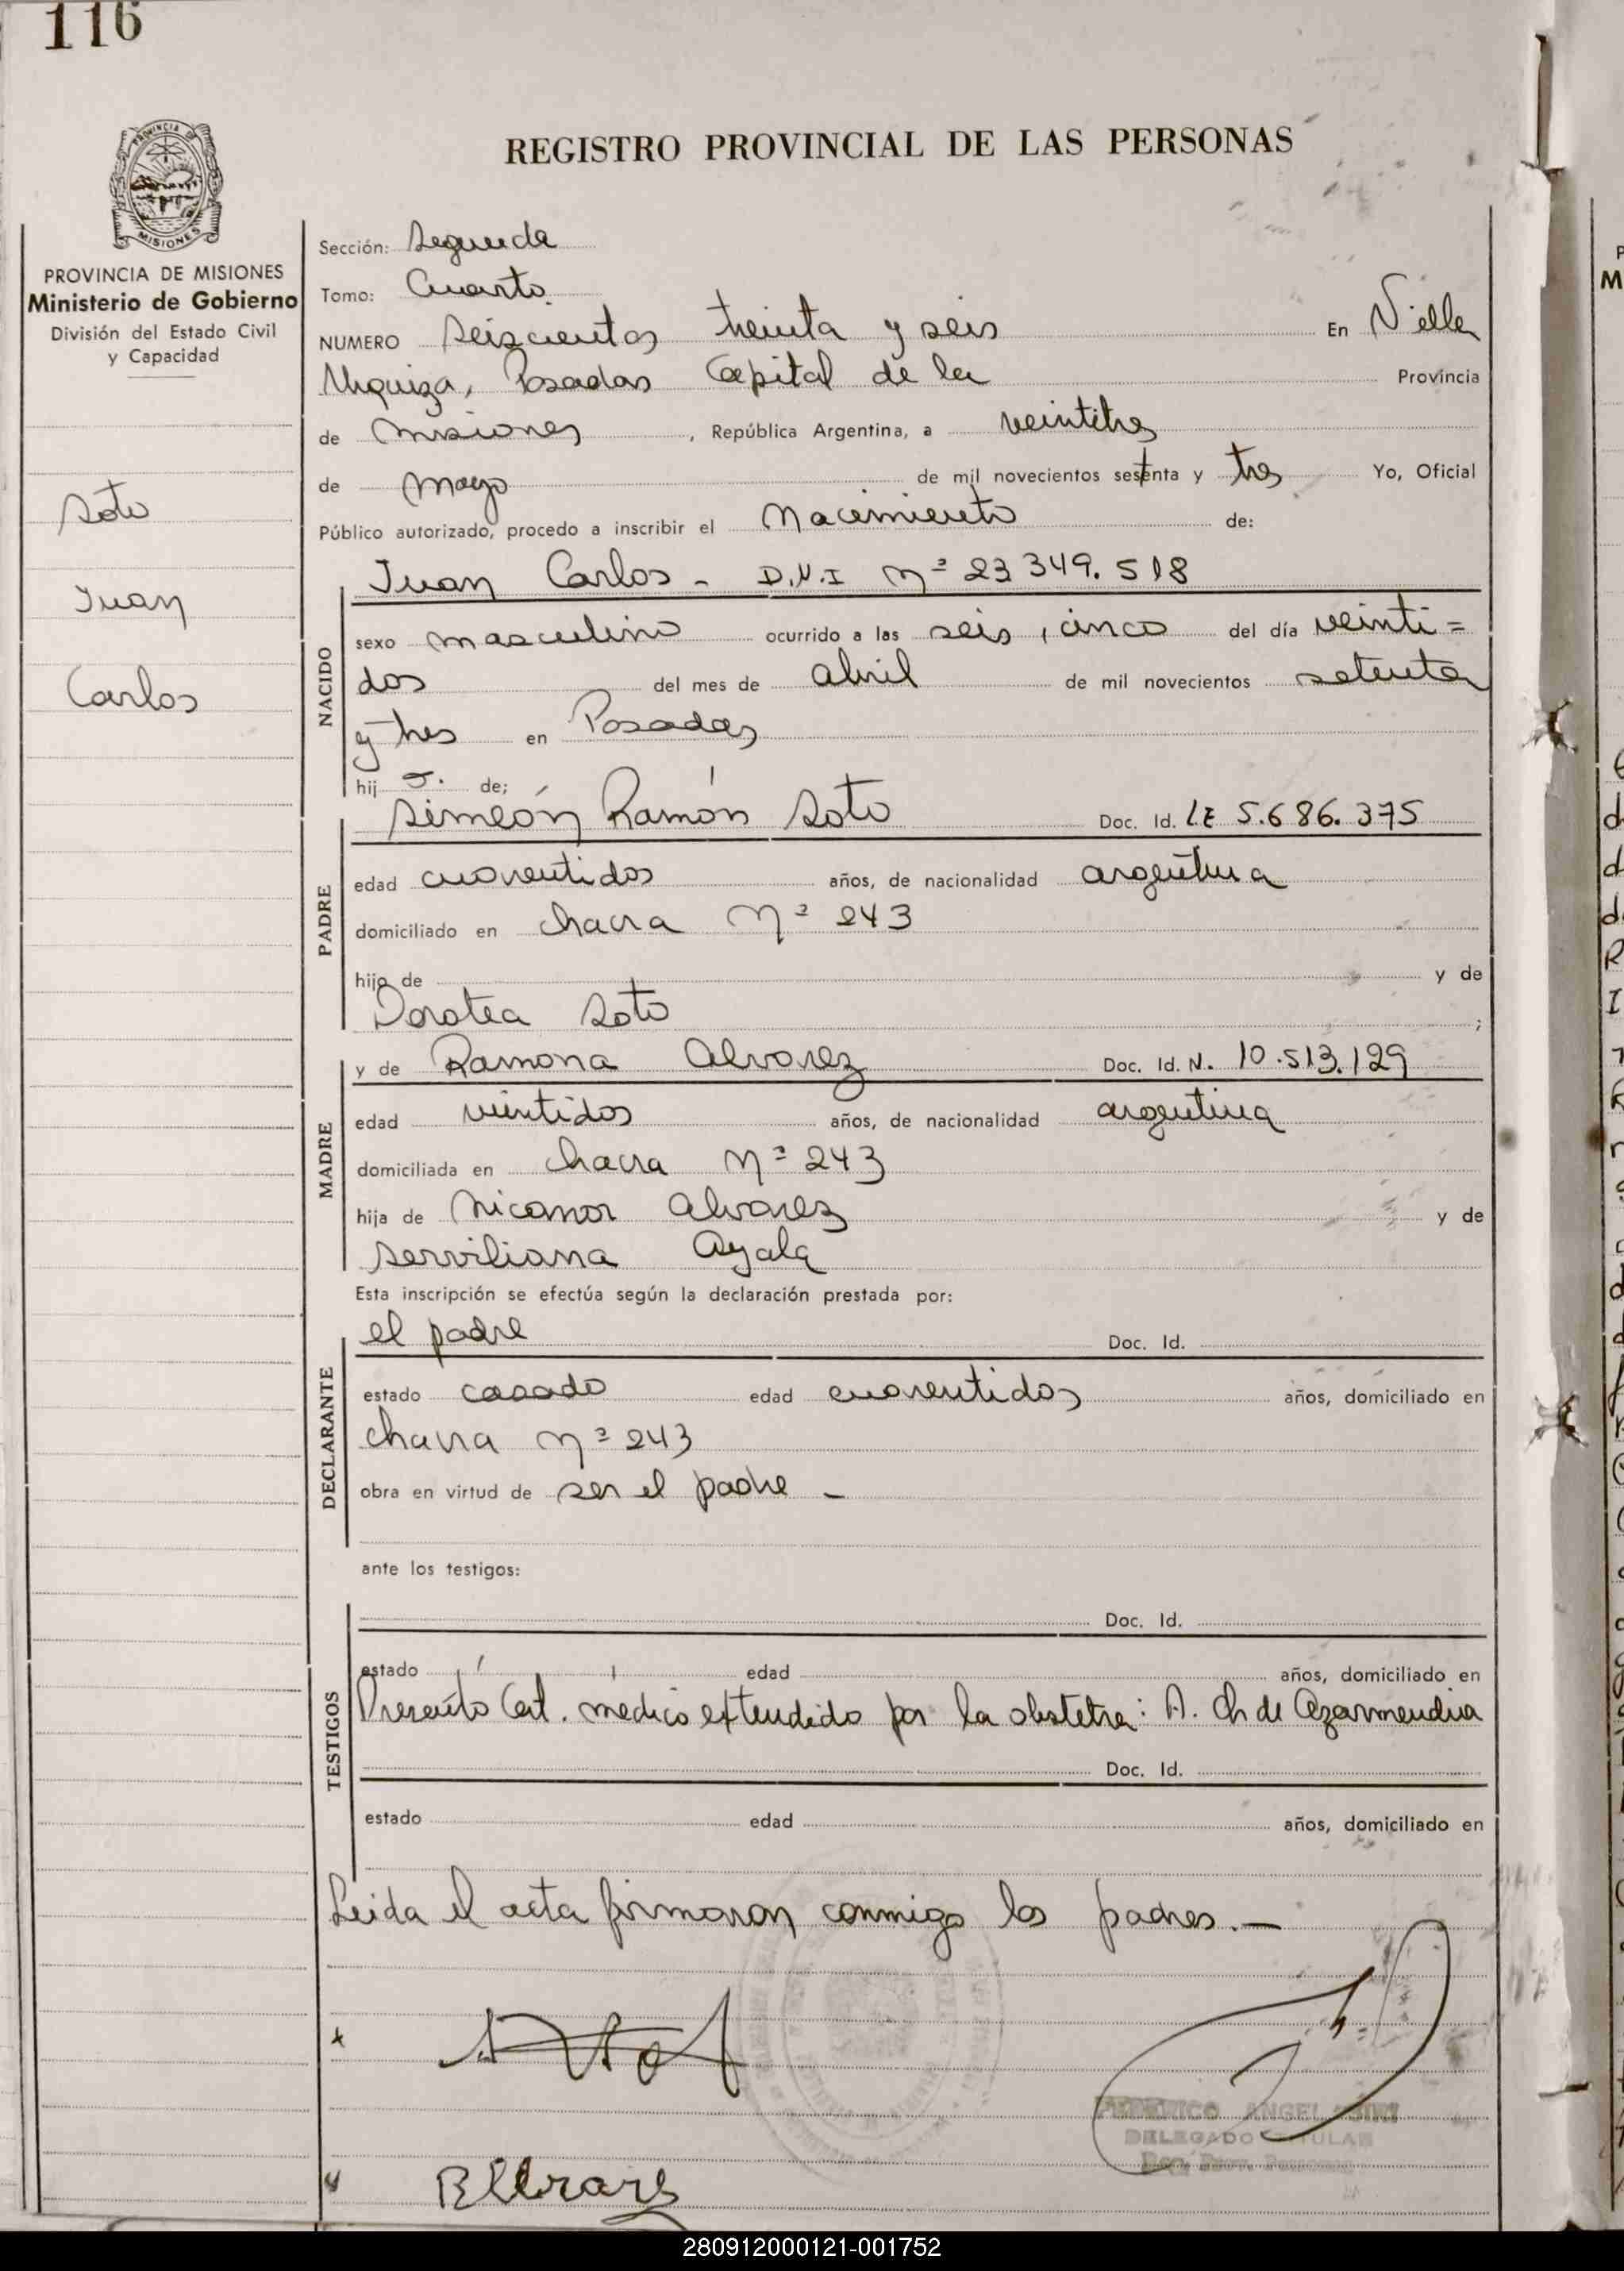 116
REGISTRO PROVINCIAL DE LAS PERSONAS
PROVINCIA DE MISIONES
Ministerio de Gobierno
División del Estado Civil
y Capacidad
Soto
Juan
Carlos
Sección: Segunda
Tomo: Cuarto
NUMERO Seiscientos treinta y seis En Villa
Urquiza, Posadas Capital de la Provincia
de Misiones, República Argentina, a veintitres
de mayo de mil novecientos setenta y tres Yo, Oficial
Público autorizado, procedo a inscribir el Nacimiento de:
Juan Carlos - D.N.I Nº 23 349.518
NACIDO
sexo masculino ocurrido a las seis, cinco del día veinti=
dos del mes de abril de mil novecientos setenta
y tres en Posadas
hijo. de;
PADRE
Simeón Ramón Soto Doc. Id. LE 5.686.375
edad cuarentidos años, de nacionalidad argentina
domiciliado en chacra Nº 243
hijo de y de
Dorotea Soto ;
MADRE
y de Ramona Alvarez Doc. Id. N. 10.513.129
edad veintidos años, de nacionalidad argentina
domiciliada en chacra Nº 243
hija de Nicanor Alvarez y de
Serviliana Ayala
Esta inscripción se efectúa según la declaración prestada por:
DECLARANTE
el padre Doc. Id.
estado casado edad cuarentidos años, domiciliado en
chacra Nº 243
obra en virtud de ser el padre -
ante los testigos:
TESTIGOS
Doc. Id.
estado edad años, domiciliado en
Presentó Cert. médico extendido por la obstetra: A. Ch de Azarmendia
Doc. Id.
estado edad años, domiciliado en
Leida el acta firmaron conmigo los padres.-
FEDERICO ANGEL
DELEGADO TITULAR
280912000121-001752